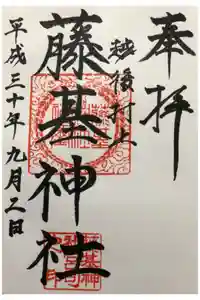 奉拝
越後村上
藤基神社
平成三十年九月二日